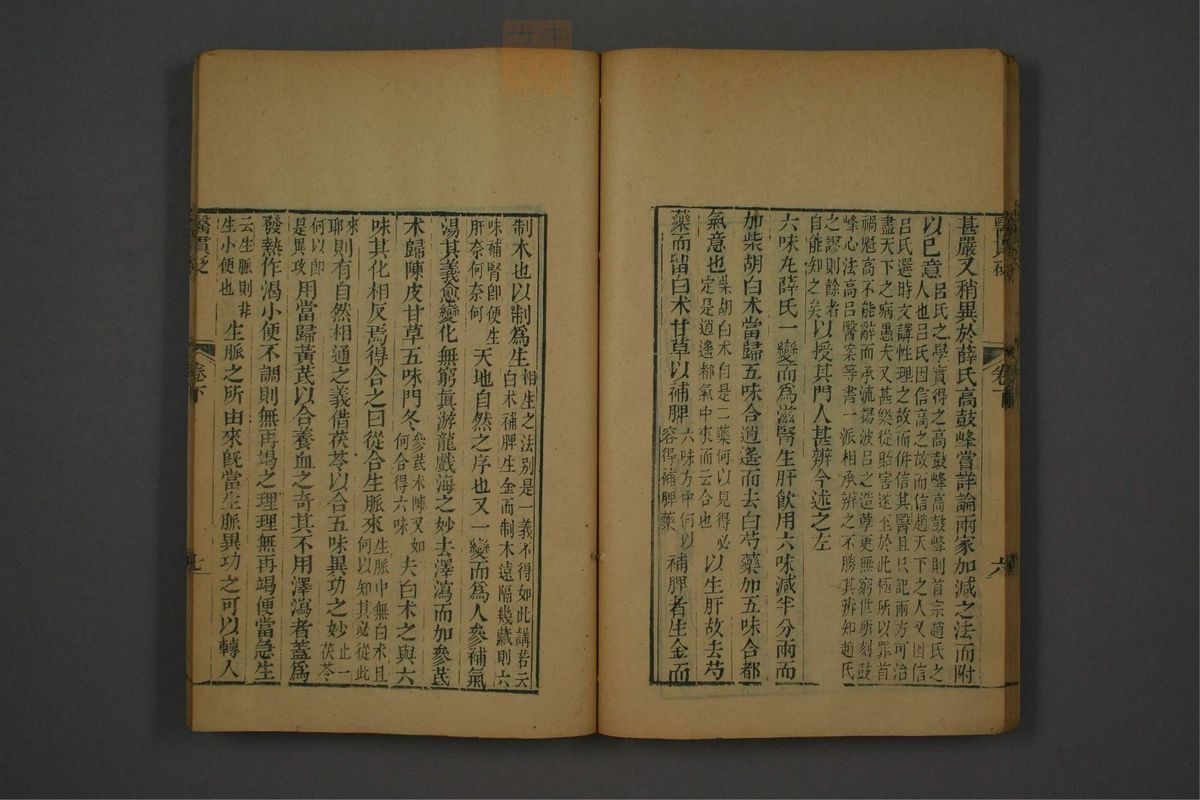 甚嚴又稍異於薛氏高鼓峰嘗詳論兩家加減之法而附
以已意呂氏之學實得之高鼓峰高鼓峰則首宗趙氏之
人也呂氏因信高之故而信趙天下之人又因信
呂氏選時文講性理之故而併信其醫且只記兩方可治
盡天下之病愚夫又甚樂從貽害遂至於此極所以罪首
禍魁高不能辭而承流揚波呂之造孽更無窮世所刻鼓
峰心法高呂醫案等書一派相承辨之不勝其辨知趙氏
之謬則餘者
自能知之矣以授其門人甚辨今述之左
六味左薛氏一變而爲滋腎生肝飲用六味減半分兩而
加柴胡白术當歸五味合逍遙而去白芍藥加五味合都
氣意也柴胡白术自是二藥何以見得必
定是逍遙都氣中來而云合也以生肝故去芍
藥而留白术甘草以補脾六味方中何以
容得補脾藥補脾者生金而
醫貫砭
卷下
六
制木也以制爲生相生之法别是一義不得如此講若云
白术補脾生金而制木遠隔幾藏則六
味補腎卽便生
肝奈何奈何天地自然之序也又一變而爲人參補氣
湯其義愈變化無窮眞游龍戲海之妙去澤瀉而加參芪
术歸陳皮甘草五味門冬參芪术陳又如
何合得六味夫白术之與六
味其化相反焉得合之曰從合生脈來生脈中無白术且
何以知其必從此
來
耶則有自然相通之義借茯苓以合五味異功之妙止一
茯苓
何以卽
是異攻用當歸黃芪以合養血之奇其不用澤瀉者蓋爲
發熱作渴小便不調則無再竭之理理無再竭便當急生
云生脈則非
生小便也生脈之所由來旣當生脈異功之可以轉入
醫貫砭
卷下
七